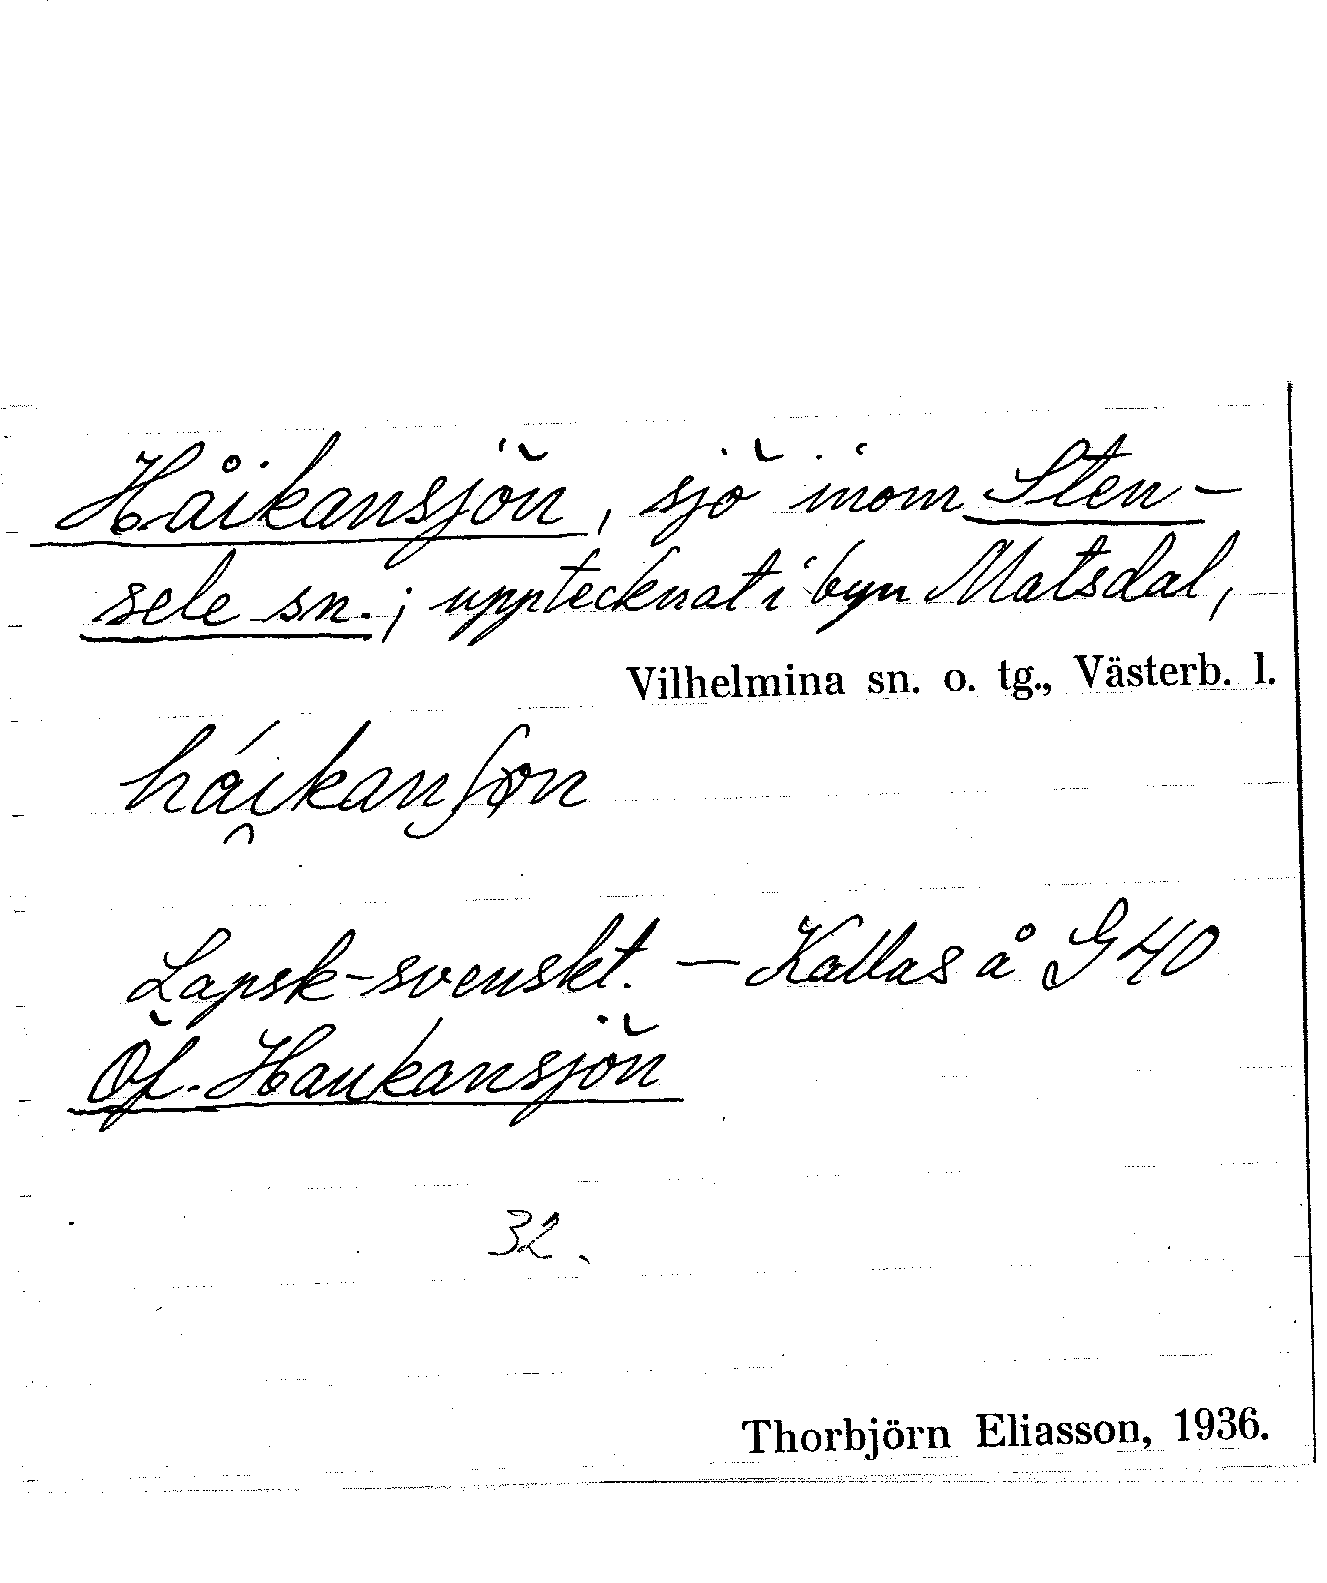 Håikansjön, sjö inom Sten-
sele sn.; upptecknat i byn Matsdal,
Vilhelmina sn. o. tg., Västerb. l.
Lapsk-svenskt. — Kallas å G 40
Öf. Haukansjön
32.
Thorbjörn Eliasson, 1936.